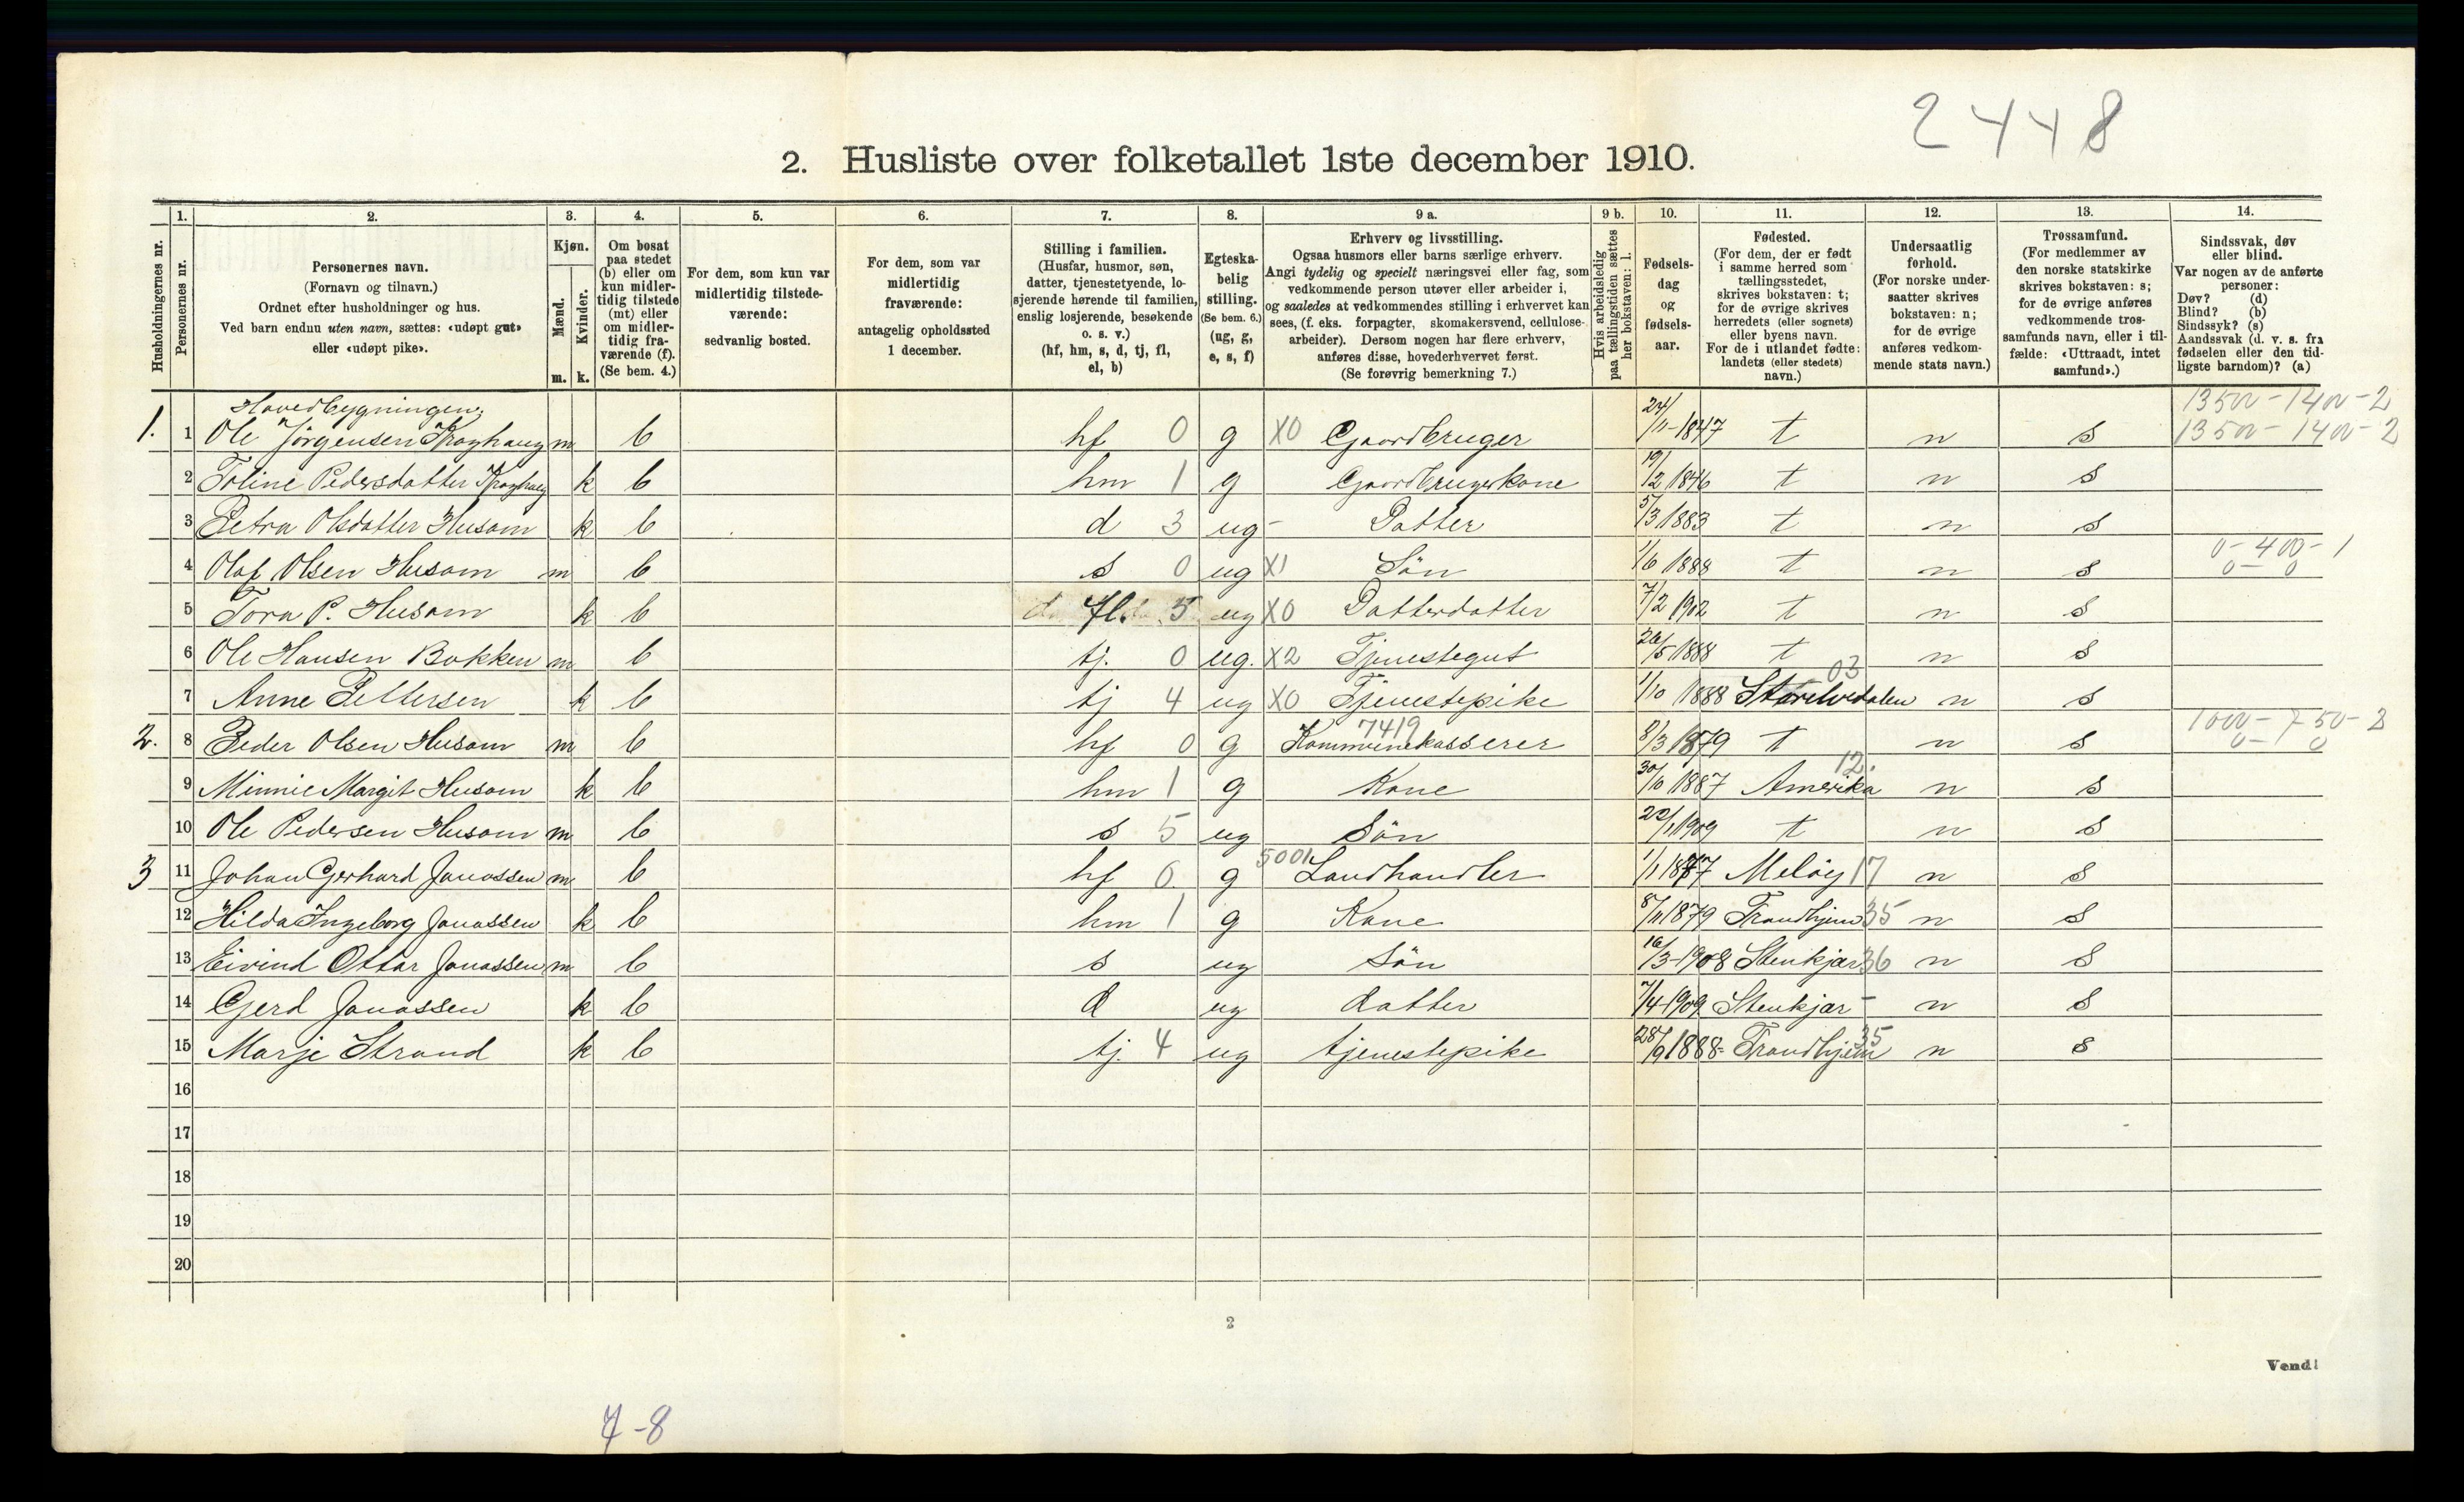 2448
2. Husliste over folketallet 1ste december 1910.
Husholdningernes nr.
1. Personernes nr.
2. Personernes navn.
(Fornavn og tilnavn.)
Ordnet efter husholdninger og hus.
Ved barn endnu uten navn, sættes: «udøpt gut»
eller «udøpt pike».
3. Kjøn.
Mænd. m.
Kvinder. k.
4. Om bosat
paa stedet
(b) eller om
kun midler-
tidig tilstede
(mt) eller
om midler-
tidig fra-
værende (f).
(Se bem. 4.)
5. For dem, som kun var
midlertidig tilstede-
værende:
sedvanlig bosted.
6. For dem, som var
midlertidig
fraværende:
antagelig opholdssted
1 december.
7. Stilling i familien.
(Husfar, husmor, søn,
datter, tjenestetyende, lo-
sjerende hørende til familien,
enslig losjerende, besøkende
o. s. v.)
(hf, hm, s, d, tj, fl,
el, b)
8. Egteska-
belig
stilling.
(Se bem. 6.)
(ug, g,
e, s, f)
9 a. Erhverv og livsstilling.
Ogsaa husmors eller barns særlige erhverv.
Angi tydelig og specielt næringsvei eller fag, som
vedkommende person utøver eller arbeider i,
og saaledes at vedkommendes stilling i erhvervet kan
sees, (f. eks. forpagter, skomakersvend, cellulose-
arbeider). Dersom nogen har flere erhverv,
anføres disse, hovederhvervet først.
(Se forøvrig bemerkning 7.)
9 b. Hvis arbeidsledig
paa tællingstiden sættes
her bokstaven: l.
10. Fødsels-
dag
og
fødsels-
aar.
11. Fødested.
(For dem, der er født
i samme herred som
tællingsstedet,
skrives bokstaven: t;
for de øvrige skrives
herredets (eller sognets)
eller byens navn.
For de i utlandet fødte:
landets (eller stedets)
navn.)
12. Undersaatlig
forhold.
(For norske under-
saatter skrives
bokstaven: n;
for de øvrige
anføres vedkom-
mende stats navn.)
13. Trossamfund.
(For medlemmer av
den norske statskirke
skrives bokstaven: s;
for de øvrige anføres
vedkommende tros-
samfunds navn, eller i til-
fælde: «Uttraadt, intet
samfund».)
14. Sindssvak, døv
eller blind.
Var nogen av de anførte
personer:
Døv? (d)
Blind? (b)
Sindssyk? (s)
Aandssvak (d. v. s. fra
fødselen eller den tid-
ligste barndom)? (a)
Hovedbygningen. 13500-1400-2
1. 1 Ole Jørgensen Kroghaug m b hf 0 g X0 Gaardbruger 24/11-1847 t n s 13500-1400-2
2 Toline Pedersdatter Kroghaug k b hm 1 g Gaardbrugerkone 19/12 1846 t n s
3 Petra Olsdatter Husom k b d 3 ug - Datter 5/3 1883 t n s
4 Olaf Olsen Husom m b s 0 ug X1 Sön 1/6 1888 t n s 0-400-1
0-0
5 Tora P. Husom k b fl. 5 ug X0 Datterdatter 7/2 1902 t n s
6 Ole Hansen Bakken m b tj. 0 ug. X2 Tjenestegut 26/5 1888 t n s
7 Anne Pettersen k b tj 4 ug X0 Tjenestepike 1/10 1888 Storelvedalen 03 n s
2. 8 Peder Olsen Husom m b hf 0 g Kommunekasserer 7419 8/3 1879 t n s 1000-750-2
0-0
9 Minnie Margit Husom k b hm 1 g Kone 30/10 1887 Amerika 12. n s
10 Ole Pedersen Husom m b s 5 ug Sön 22/1 1909 t n s
3 11 Johan Gerhard Jonassen m b hf 0. g 5001 Landhandler 1/1 1877 Melöy 17 n s
12 Hilda Ingeborg Jonassen k b hm 1 g Kone 8/11 1879 Trondhjem 35 n s
13 Eivind Ottar Jonassen m b s ug Sön 16/3-1908 Stenkjær 36 n s
14 Gerd Jonassen k b d ug datter 7/4-1909 Stenkjær - n s
15 Marje Strand k b tj. 4 ug tjenestepike 28/9 1888- Trondhjem 35 n s
16
17
18
19
20
2
Vend!
7-8